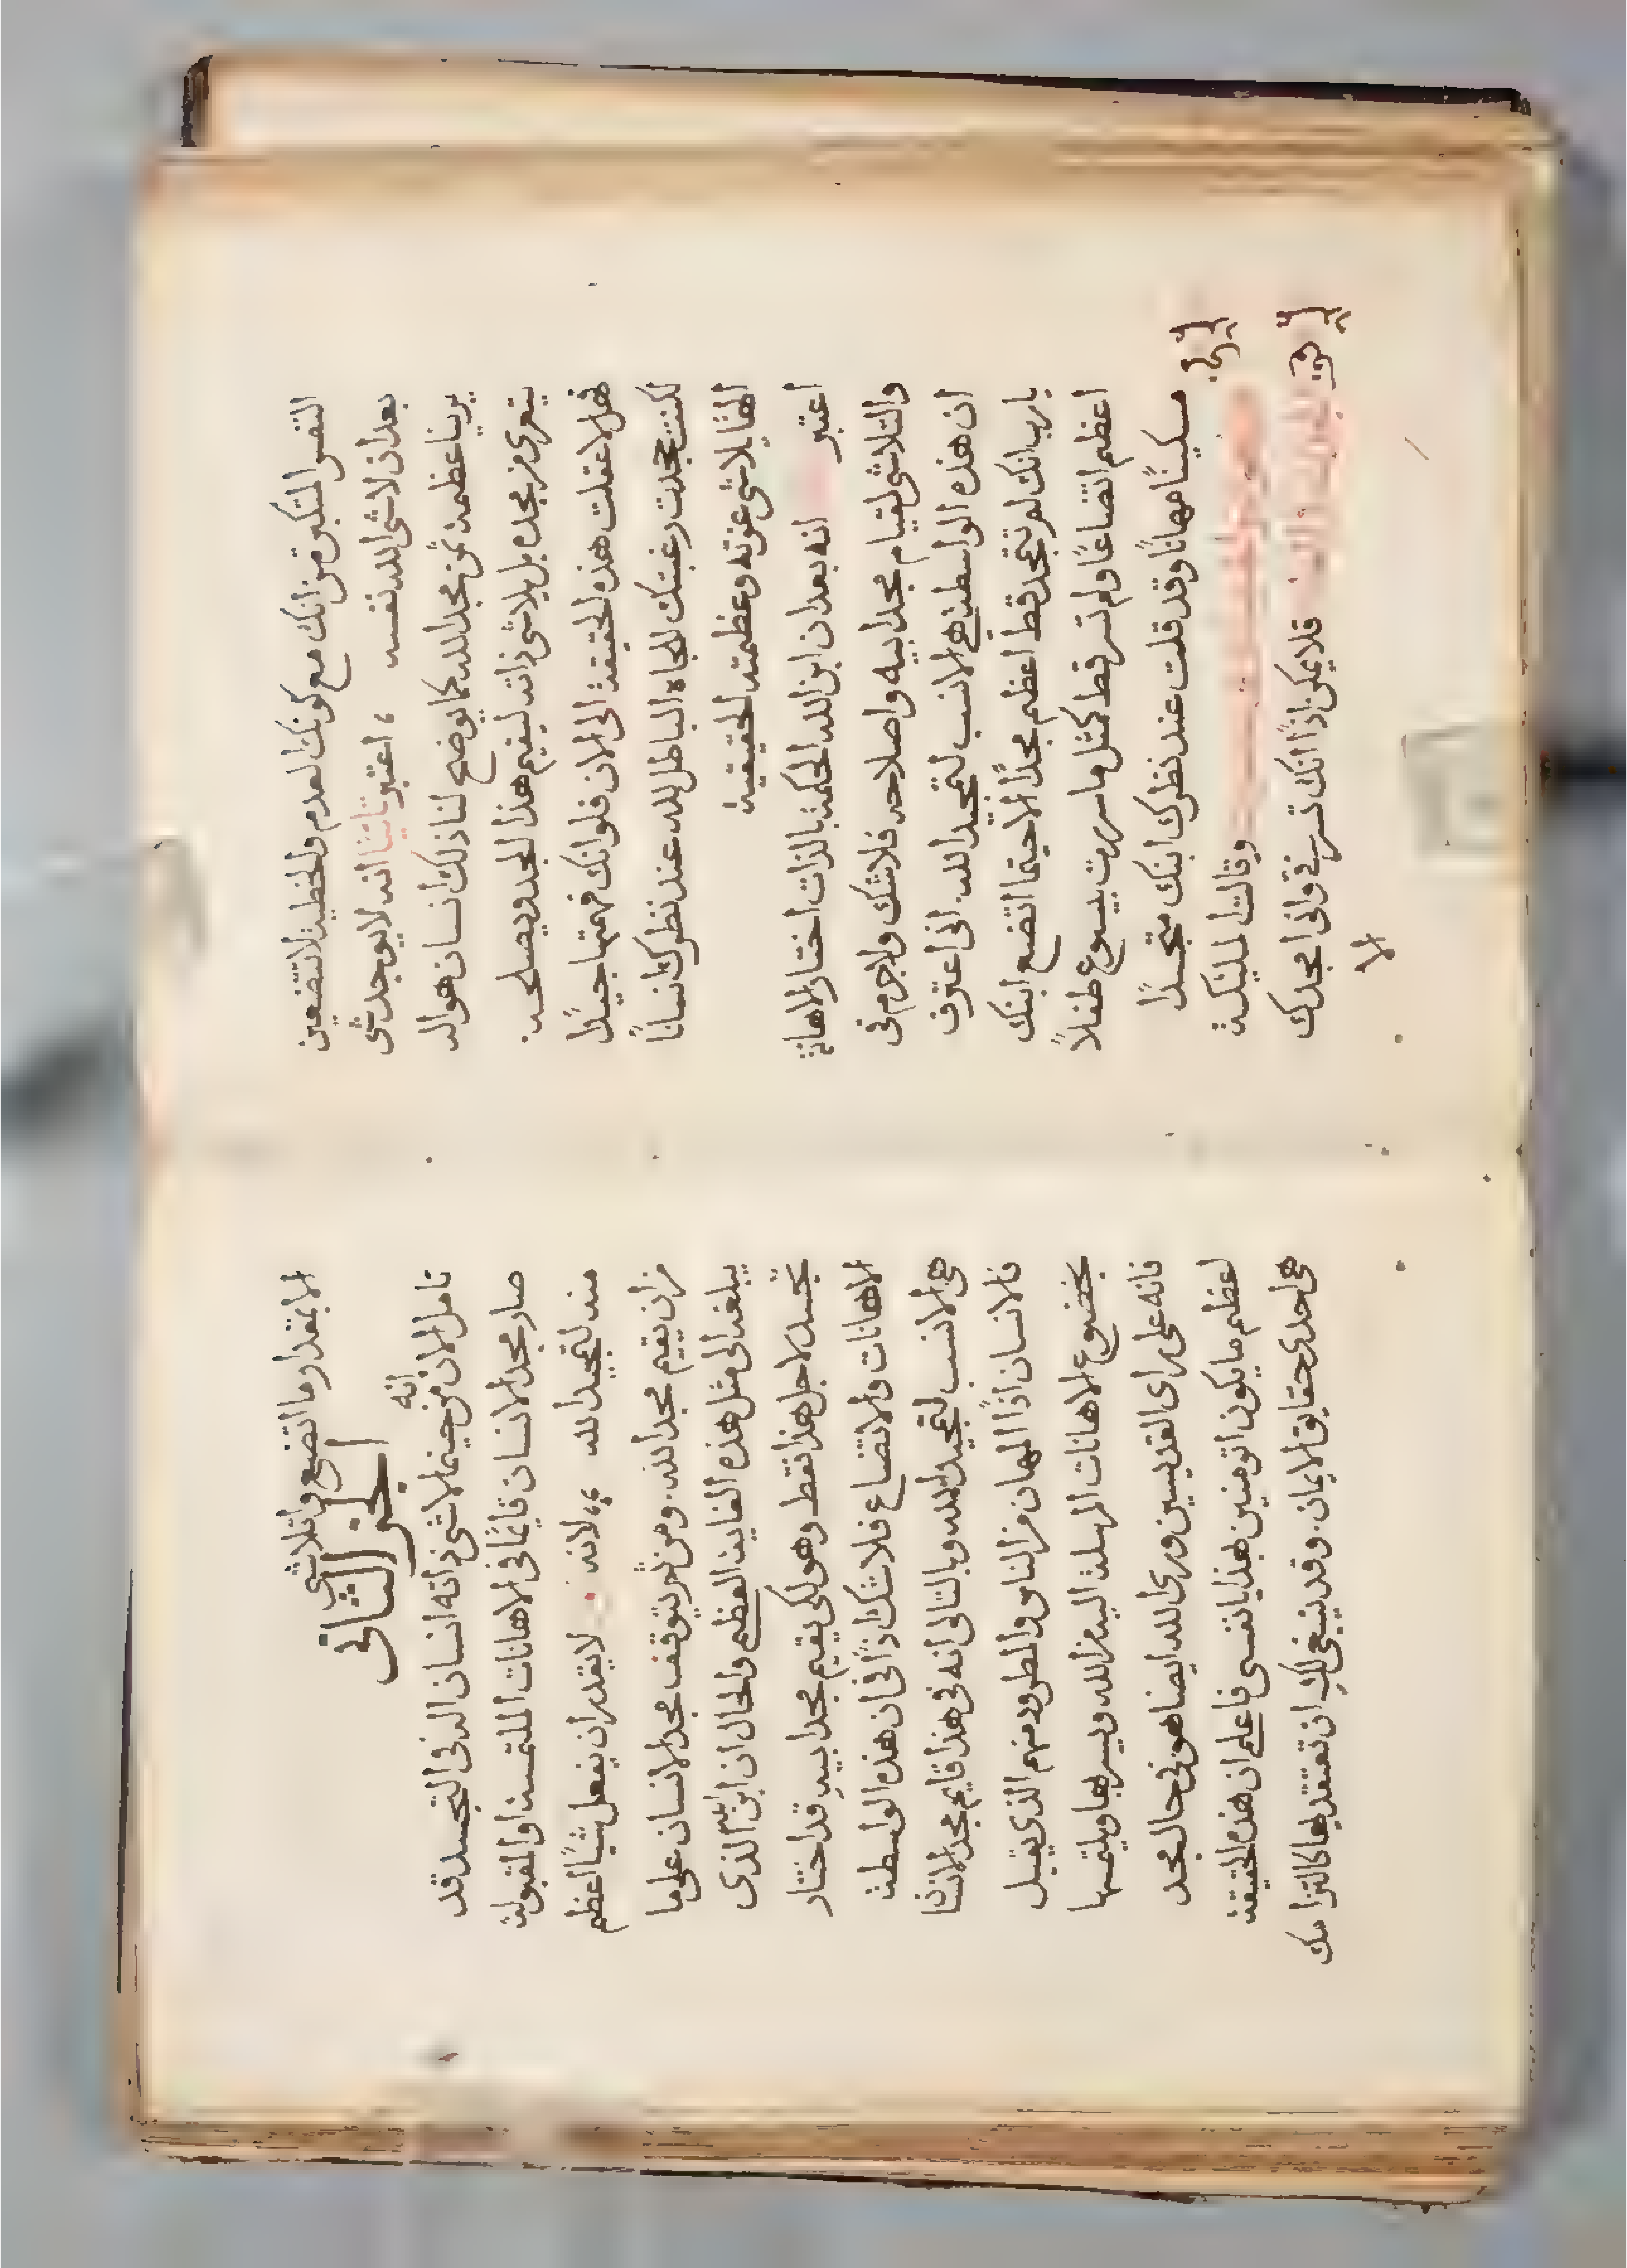 النفس المتكبرة من انك مع كونك العدم والخطية لا تتضعين
بعد ان لاشى الله نفسه ، اعتبر ثانيًا انه لا يوجد شى
يرينا عظمة ثمن مجد الله كما يوضح لنا ذلك انسان هو اله
يتعرى من مجده بل يلاشى ذاته ليقيم هذا المجد ويصلحه
فهل لا عقلت هذه الحقيقة الى الان فلو انك فهمتها جيدًا
لكنت جحدت رغبتك للجاه الباطل لله عند نظرك انسانًا
الهًا يلاشى عزته وعظمته الحقيقيه
اعتبر انه بعد ان ابن الله الحكمة بالذات اختار الاهانة
والتلاشى لقيام مجد ابيه واصلاحه فلا شك ولا جرم فى
ان هذه الواسطة هي الانسب لتمجيد الله. انى اعترف
يا رب انك لم تتمجد قط اعظم مجدًا الا حيثما اتضع ابنك
اعظم اتضاعًا ولم تسر قط كمثل ما سررت بيسوع طفلاً
مسكينًا مهانًا وقد قلت عند نظرك ابنك متجسدًا
وقالت المليكة
فلا يمكن اذًا انك تسر في وانى امجدك
الا
الا بمقدار ما اتضع واتلاشى
الجزء الثانى
تامل الان من حينما لاشى ذاته انسان اله فى التجسد قد
انه
صار مجد الانسان قايمًا فى الاهانات الملتمسة او المقبولة
منه لتمجيد الله ، لانه لا يقدر ان يفعل شيًا اعظم
من ان يقيم مجد الله. ومن ثم يتوقف مجد الانسان على ما
يبلغه الى مثل هذه الغاية العظم والحال ان ابن الله الذى
تجسد لاجل هذا فقط وهو لكى يقيم مجد ابيه قد اختار
الاهانات والاتضاع فلا شك اذًا فى ان هذه الواسطة
هى الانسب لتمجيد الله وبالتالى انه فى هذا قايم مجد الانسان
فالانسان اذًا المهان من الناس والمطرود منهم الذى يقبل
بخضوع الاهانات المرسلة اليه من الله ويسر بها ويلتمسها
فانه على راى القديسين وراى الله ايضا هو فى حال مجد
اعظم ما يكون اتومنين بهذا يا نفسى فاعلم ان هذه الحقيقة
هى احدى حقايق الايمان. وقد ينبغى لك ان تعتقد بها كالتزامك